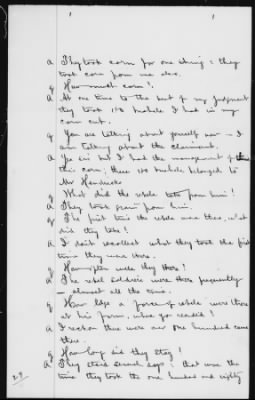 1 1
a They took corn for one thing: they
took corn from me also.
q How much corn?
a At one time to the best of my judgment
they took 180 bushels I had in my
corn out.
q You are talking about yourself now – I
am talking about the claimant.
a Yes sir but I had the management of
this corn; there 100 bushels belonged to
Mr Hendricks
q What did the rebels take from him?
a They took from him.
q The first time the rebels were there, what
did they take?
a I don't recollect what they took the first
time they were there.
q How often were they there?
a The rebel soldiers were there frequently
– almost all the time.
q How large a force of rebels were there
at his farm, when you resided?
a I reckon there were over one hundred came
there.
q How long did they stay?
a They staid several days; that was the
time they took the one hundred and eighty
29